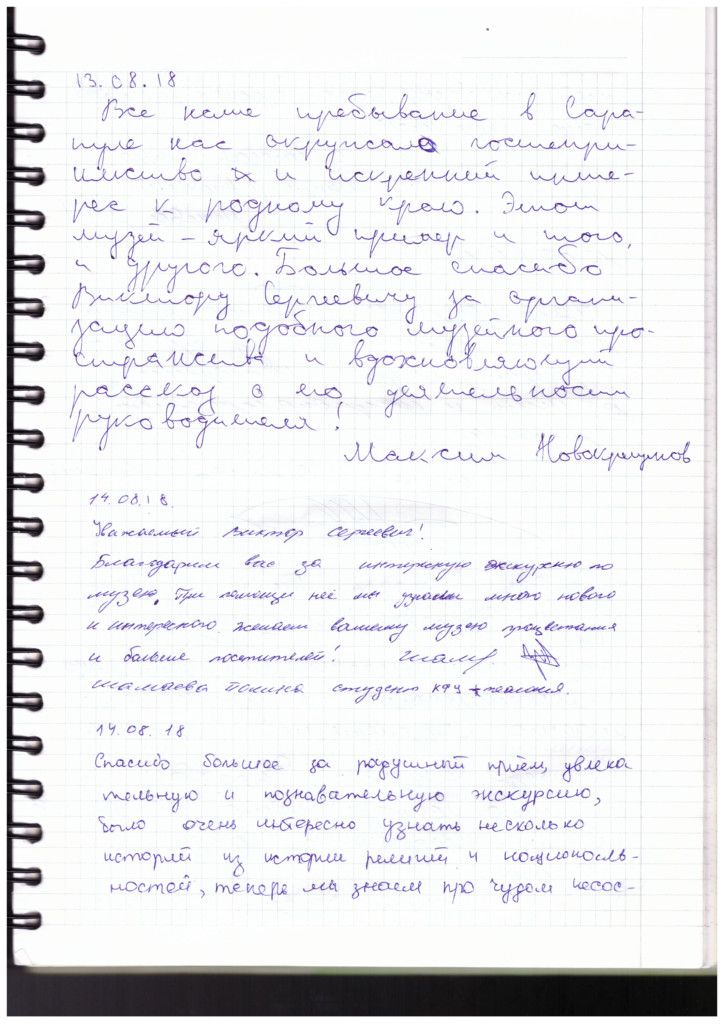 13.08.18
Все наше пребывание в Сара-
пуле нас окружало гостепри-
имство и искренний инте-
рес к родному краю. Этот
музей – яркий пример и того,
и другого. Большое спасибо
Виктору Сергеевичу за органи-
зацию подобного музейного про-
странства и вдохновляющий
рассказ о его деятельности
руководителя!
Максим Новокрещенов
14.08.18.
Уважаемый Виктор Сергеевич!
Благодарим вас за интересную экскурсию по
музею. При помощи неё мы узнали много нового
и интересного. Желаем вашему музею процветания
и больше посетителей!
Шамаева Полина студент КФУ
14.08.18
Спасибо большое за радушный приём, увлека
тельную и познавательную экскурсию,
было очень интересно узнать несколько
историй из истории религий и националь-
ностей, теперь мы знаем про чудом несос-